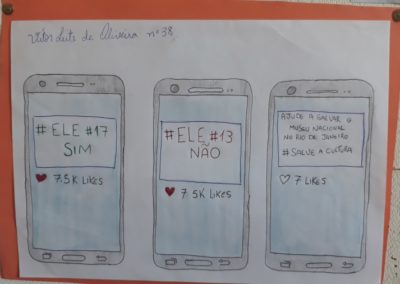 Vitor Luis de Oliveira nº 38
# ELE #17
SIM
7.5K LIKES
# ELE #13
NÃO
7.5K LIKES
AJUDE A SALVAR O
MUSEU NACIONAL
NO RIO DE JANEIRO
#SALVE A CULTURA
7 LIKES